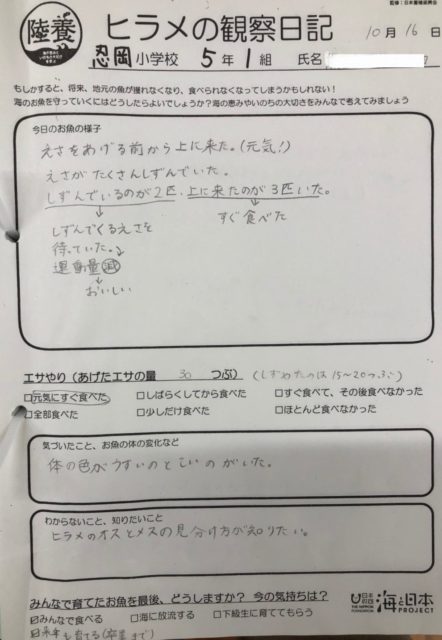 監修：日本養殖振興会
陸養
ヒラメの観察日記
10月16日
忍岡小学校 5年1組 氏名
もしかすると、将来、地元の魚が獲れなくなり、食べられなくなってしまうかもしれない！
海のお魚を守っていくにはどうしたらよいでしょうか？海の恵みやいのちの大切さをみんなで考えてみましょう
今日のお魚の様子
えさをあげる前から上に来た。(元気!)
えさがたくさんしずんでいた。
しずんでいるのが2匹、上に来たのが3匹いた。
↓ ↓
しずんでくるえさを すぐ食べた
待っていた。
運動量減
↓
おいしい
エサやり（あげたエサの量 30 つぶ） (しずめたのは15~20つぶ)
□元気にすぐ食べた □しばらくしてから食べた □すぐ食べて、その後食べなかった
□全部食べた □少しだけ食べた □ほとんど食べなかった
気づいたこと、お魚の体の変化など
体の色がうすいのとこいのがいた。
わからないこと、知りたいこと
ヒラメのオスとメスの見分け方が知りたい。
みんなで育てたお魚を最後、どうしますか？ 今の気持ちは？
☑みんなで食べる □海に放流する □下級生に育ててもらう
も育てる(卒業まで)
日本財団
THE NIPPON FOUNDATION
海と日本
PROJECT